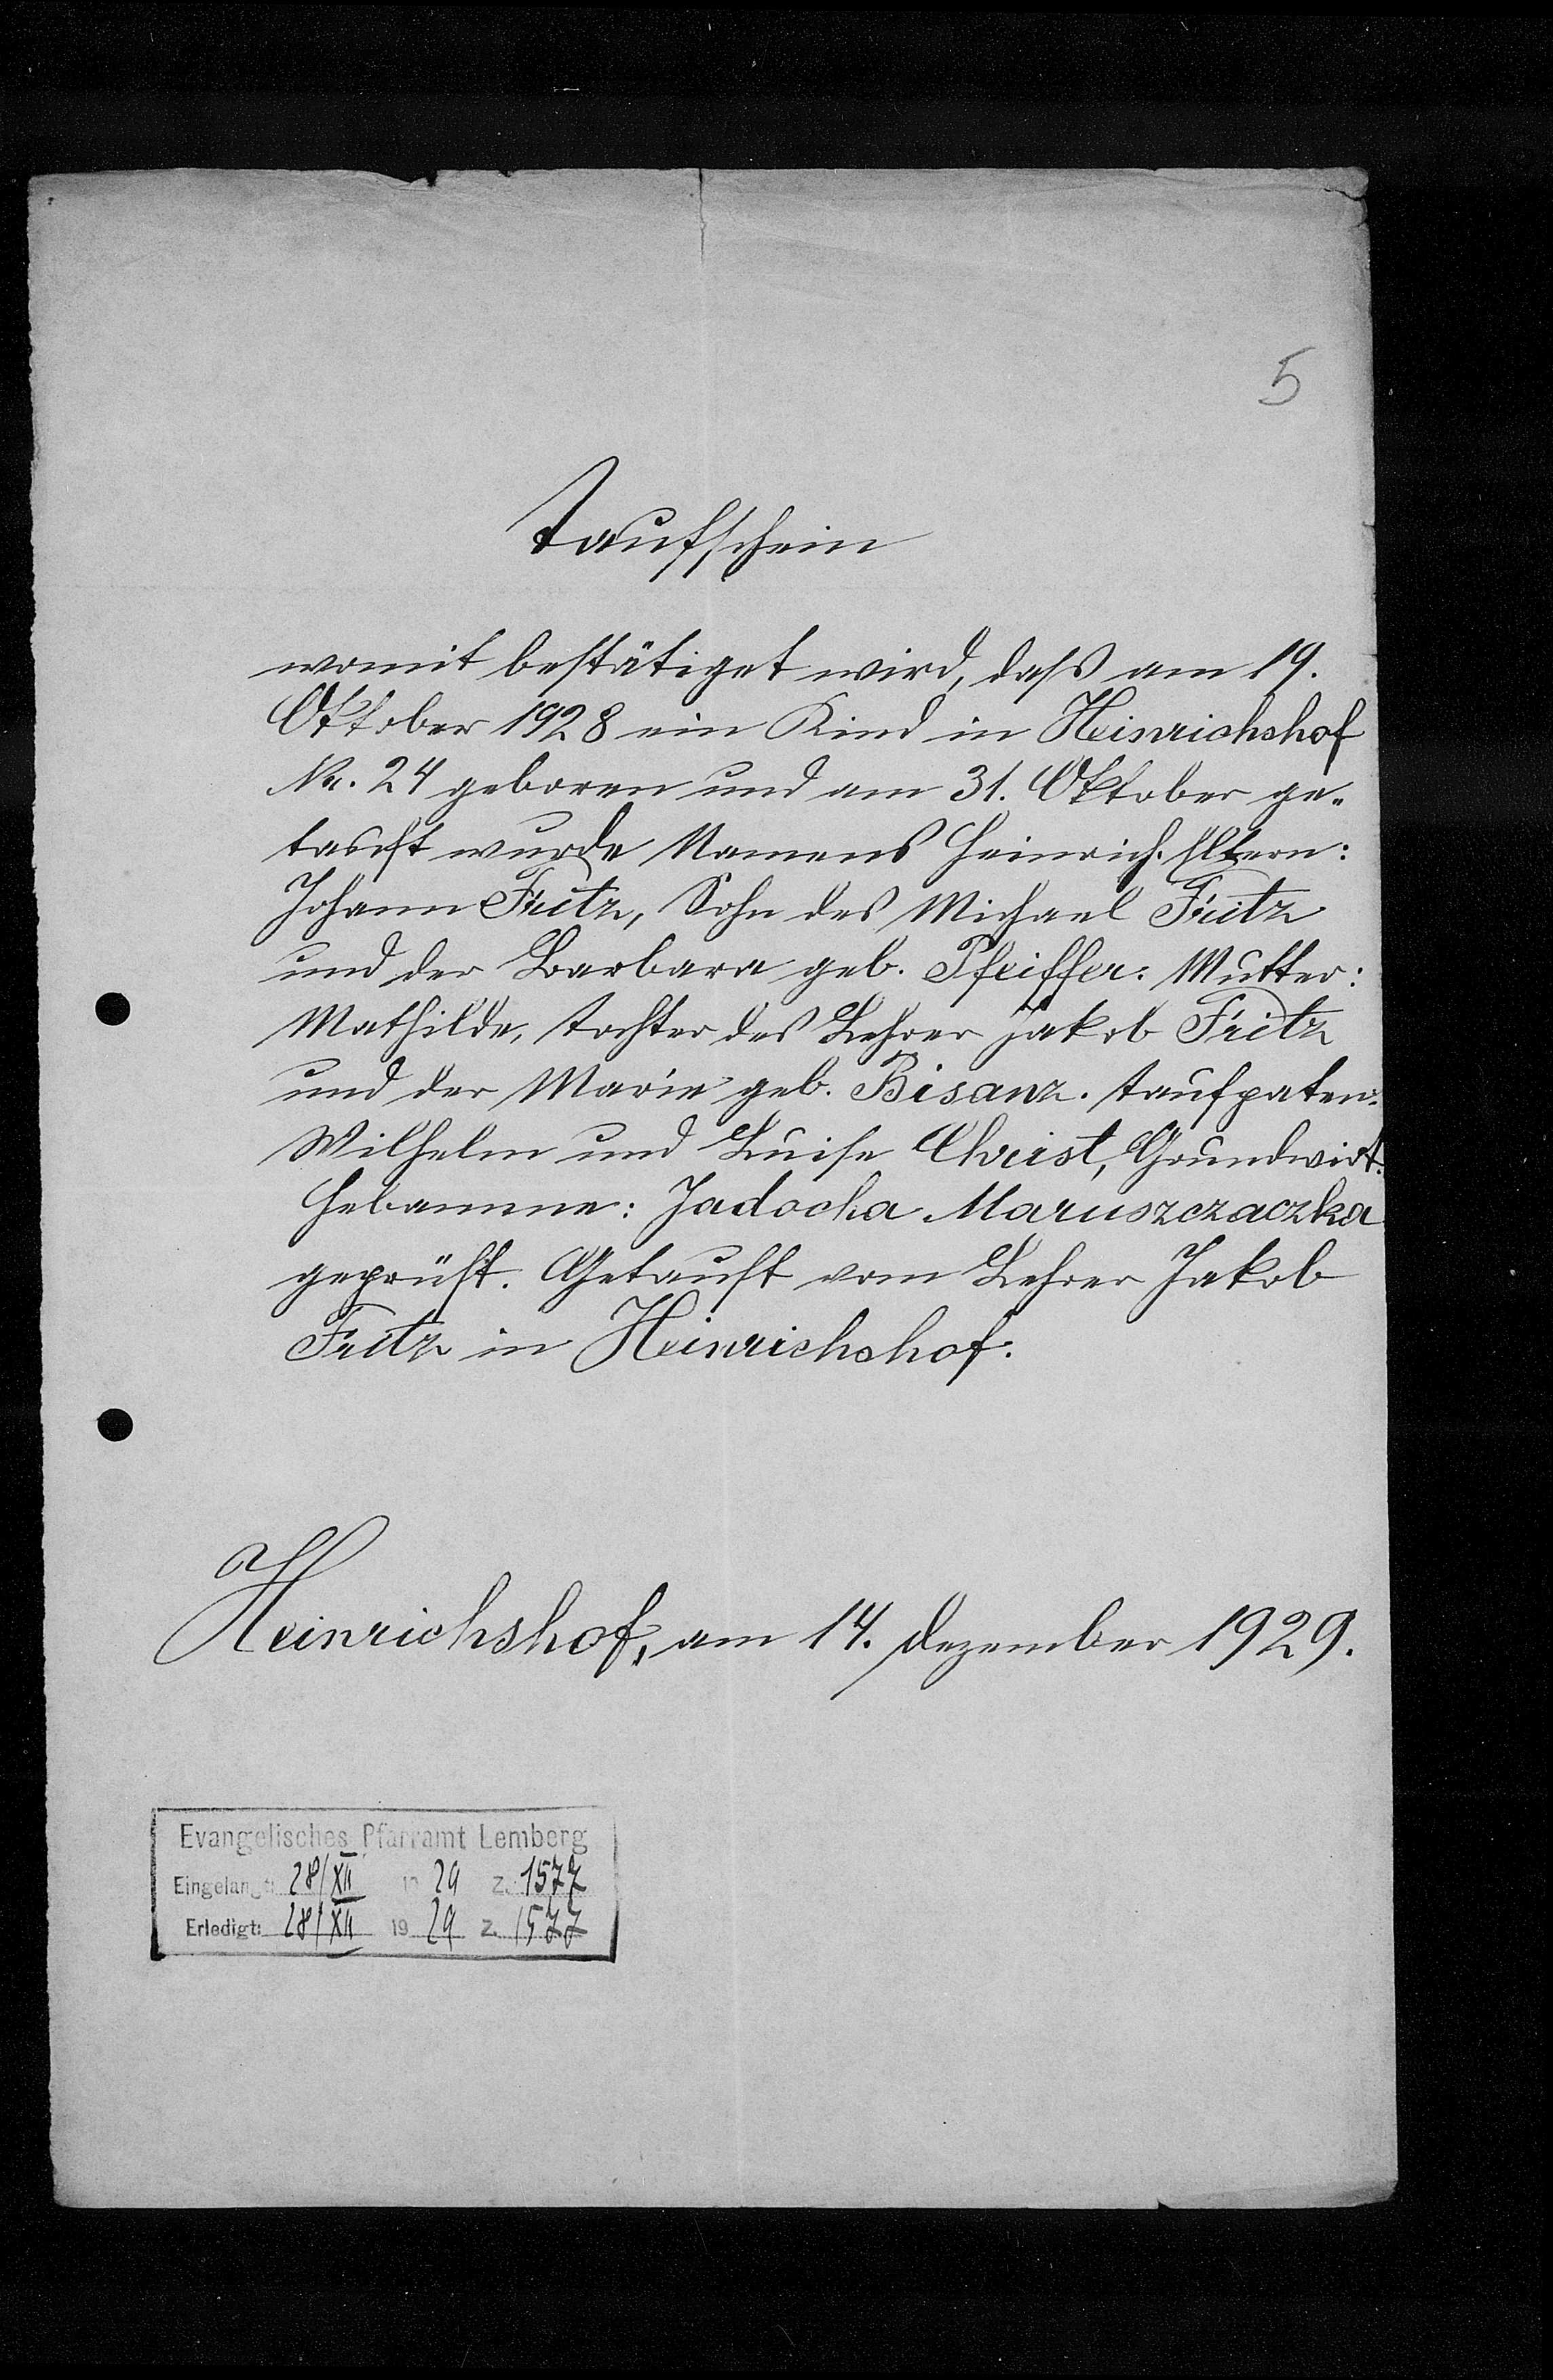 5
Taufschein
womit bestätiget wird, dass am 19.
Oktober 1928 ein Kind in Heinrichshof
Nr. 24 geboren und am 31. Oktober ge-
tauft wurde Namens Heinrich. Eltern:
Johann Fritz, Sohn des Michael Fritz
und der Barbara geb. Pfeiffer. Mutter:
Mathilde, Tochter des Lehrer Jakob Fritz
und der Marie geb. Bisanz. Taufpaten:
Wilhelm und Luise Christ, Grundwirt.
Hebamme: Jadocha Maruszczaczka
geprüft. Getauft vom Lehrer Jakob
Fritz in Heinrichshof.
Heinrichshof, am 14. Dezember 1929.
Evangelisches Pfarramt Lemberg
Eingelangt: 28/XII 1929 Z. 1577
Erledigt: 28/XII 1929 Z. 1577